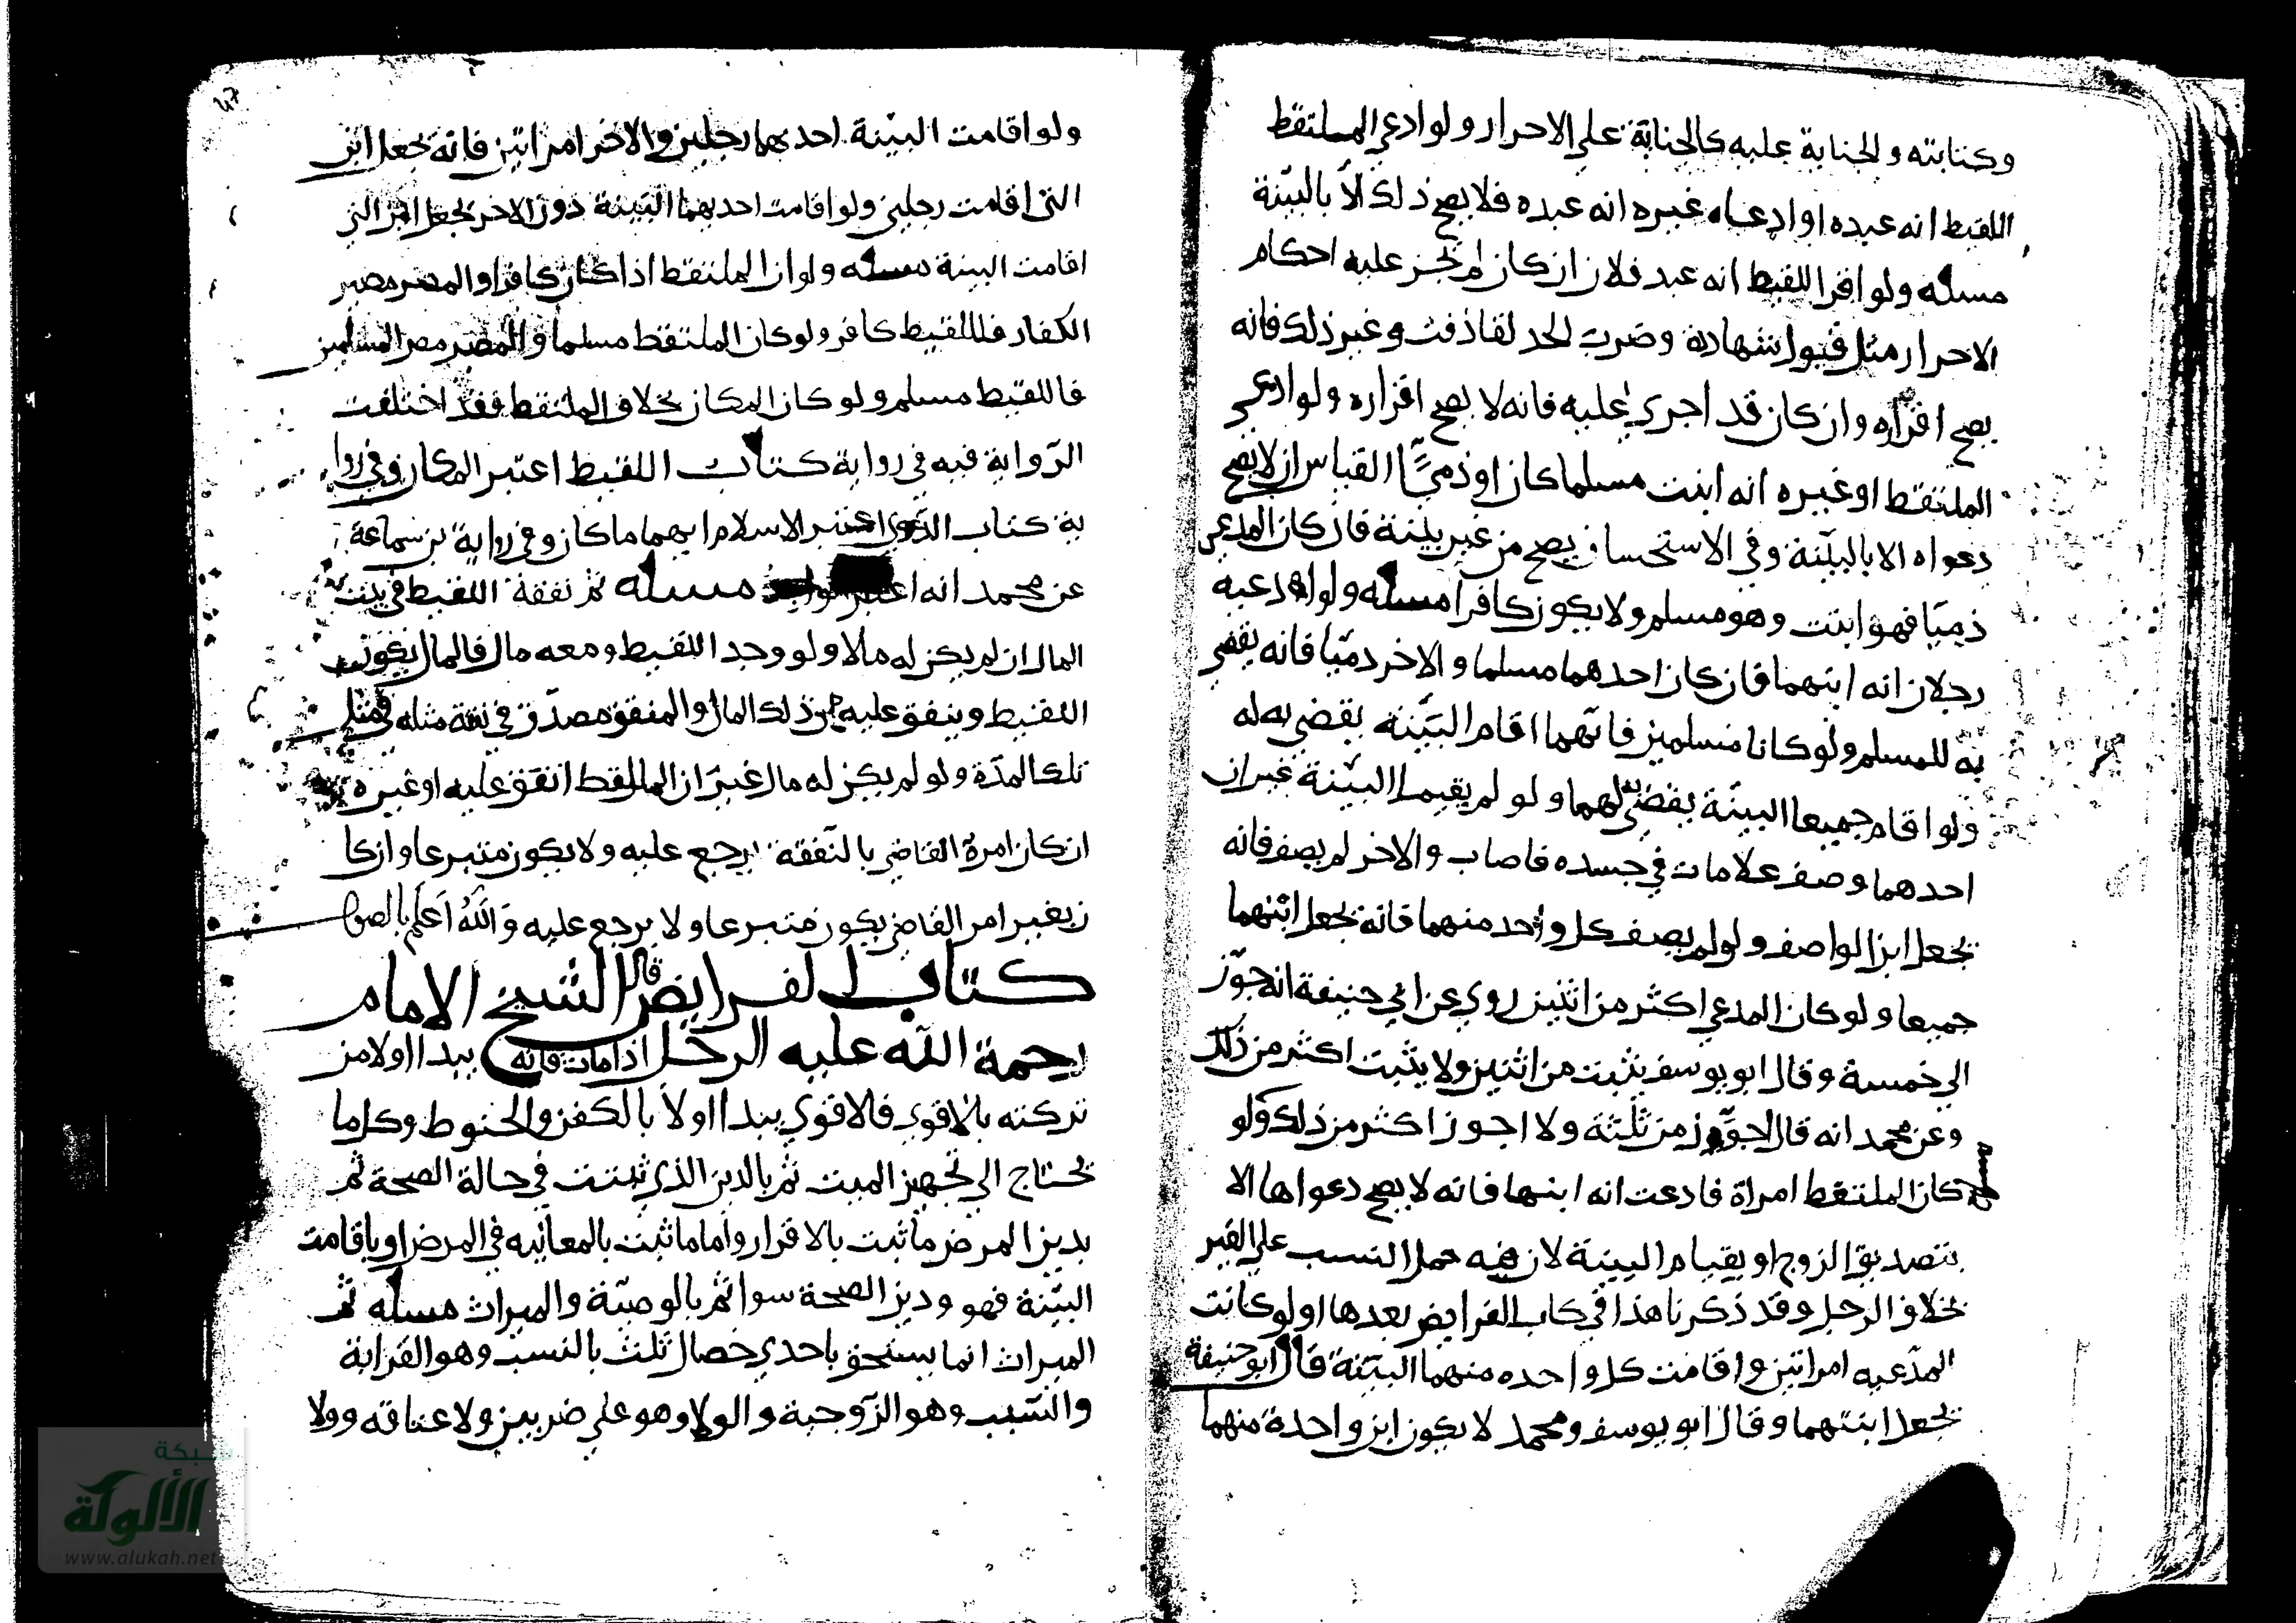 وكتابته والجناية عليه كالجناية علي الاحرار ولو ادعي الملتقط
اللقيط انه عبده او ادعاه غيره انه عبده فلا يصح ذلك الا بالبينة
مسله ولو اقر اللقيط انه عبد فلان ان كان لم تجز عليه احكام
الاحرار مثل قبول شهادة وضرب الحد لقاذفه وغير ذلك فانه
يصح اقراره وان كان قد اجري عليه فانه لا يصح اقراره ولو ادعي
الملتقط او غيره انه ابنه مسلما كان او ذميا القياس ان لا يصح
دعواه الا بالبينة وفي الاستحسان يصح من غير بينة فان كان المدعي
ذميا فهو ابنه وهو مسلم ولا يكون كافرا مسله ولو ادعيه
رجلان انه ابنهما فان كان احدهما مسلما والاخر دميا فانه يقضي
به للمسلم ولو كانا مسلمين فايهما اقام البينة يقضي به له
ولو اقام جميعا البينة يقضي به لهما ولو لم يقيما البينة غير ان
احدهما وصف علامات في جسده فاصاب والاخر لم يصف فانه
يجعل ابن الواصف ولو لم يصف كل واحد منهما فانه يجعل ابنهما
جميعا ولو كان المدعي اكثر من اثنين روي عن ابي حنيفة انه جوز
الي خمسة وقال ابو يوسف يثبت من اثنين ولا يثبت اكثر من ذلك
وعن محمد انه قال اجوز من ثلثة ولا اجوز اكثر من ذلك ولو
كان الملتقط امراة فادعت انه ابنها فانه لا يصح دعواها الا
بتصديق الزوج او بقيام البينة لان فيه حمل النسب علي الغير
بخلاف الرجل وقد ذكرنا هذا في كتاب الفرايض بعدها او لو كانت
المدعيه امراتين واقامت كل واحده منهما البينة قال ابو حنيفة
يجعل ابنهما وقال ابو يوسف ومحمد لا يكون ابن واحدة منهما
ولو اقامت البينة احدهما رجلين والاخر امراتين فانه يجعل ابن
التي اقامت رجلين ولو اقامت احديهما البينة دون الاخر يجعل ابن التي
اقامت البينة مسله ولو ان الملتقط اذا كان كافرا والمصر مصر
الكفار فللقيط كافر ولو كان الملتقط مسلما والمصر مصر المسلمين
فاللقيط مسلم ولو كان المكان بخلاف الملتقط فقد اختلفت
الرواية فيه في رواية كتاب اللقيط اعتبر المكان وفي روا
ية كتاب الدعوي اعتبر الاسلام ايهما ما كان وفي رواية بن سماعة
عن محمد انه اعتبر الواجد مسله ثم نفقة اللقيط في بيت
المال ان لم يكن له مالا ولو وجد اللقيط ومعه مال فالمال يكون
اللقيط وينفق عليه من ذلك المال والمنفق مصدق في نفقة مثله في مثل
تلك المدة ولو لم يكن له مال غير ان الملتقط انفق عليه او غيره
ان كان امره القاضي بالنفقة يرجع عليه ولا يكون متبرعا وان كا
ن بغير امر القاضي يكون متبرعا ولا يرجع عليه والله اعلم بالصواب
كتاب الفرايض قال الشيخ الامام
رحمة الله عليه الرجل اذا مات فانه يبدا اولا من
تركته بالاقوي فالاقوي يبدا اولا بالكفن والحنوط وكل ما
يحتاج الي تجهيز الميت ثم بالدين الذي ثبتت في حالة الصحة ثم
بدين المرض ما ثبت بالاقرار واما ما ثبت بالمعانيه في المرض او باقامت
البينة فهو ودين الصحة سوا ثم بالوصية والميراث مسله ثم
الميراث انما يستحق باحدي خصال ثلث بالنسب وهو القرابة
والسبب وهو الزوجية والولا وهو علي ضربين ولا عتاقه وولا
شبكة
الألوكة
www.alukah.net